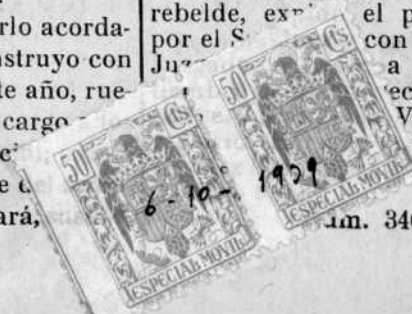 rlo acorda-
nstruyo con
te año, rue-
cargo
ci
e
ará,
rebelde, ex el p
por el S con
Juz a
ec
V
m. 340
50 Cs
ESPECIAL MOVIL
50 Cs
ESPECIAL MOVIL
6-10-1939